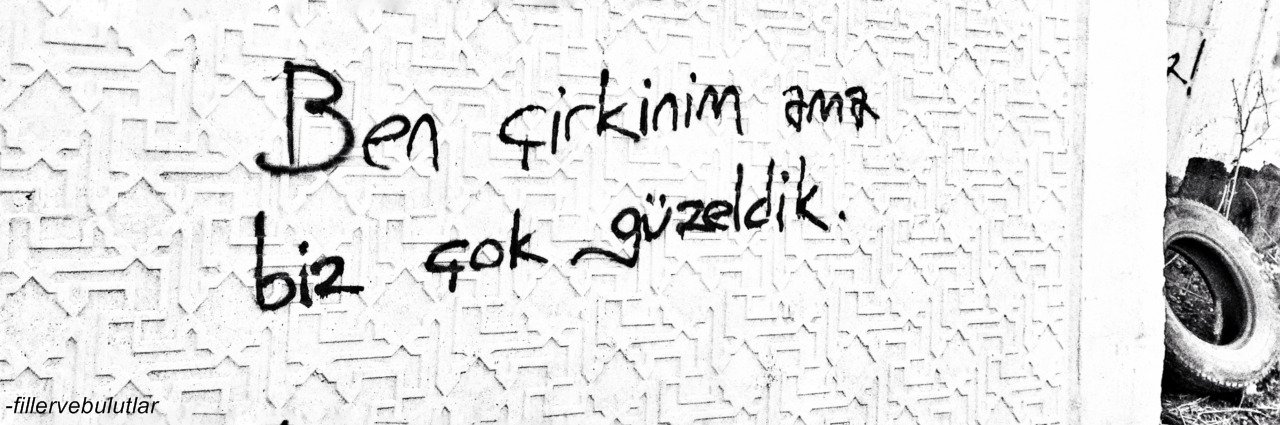 Ben çirkinim ama
biz çok güzeldik.
-fillervebulutlar